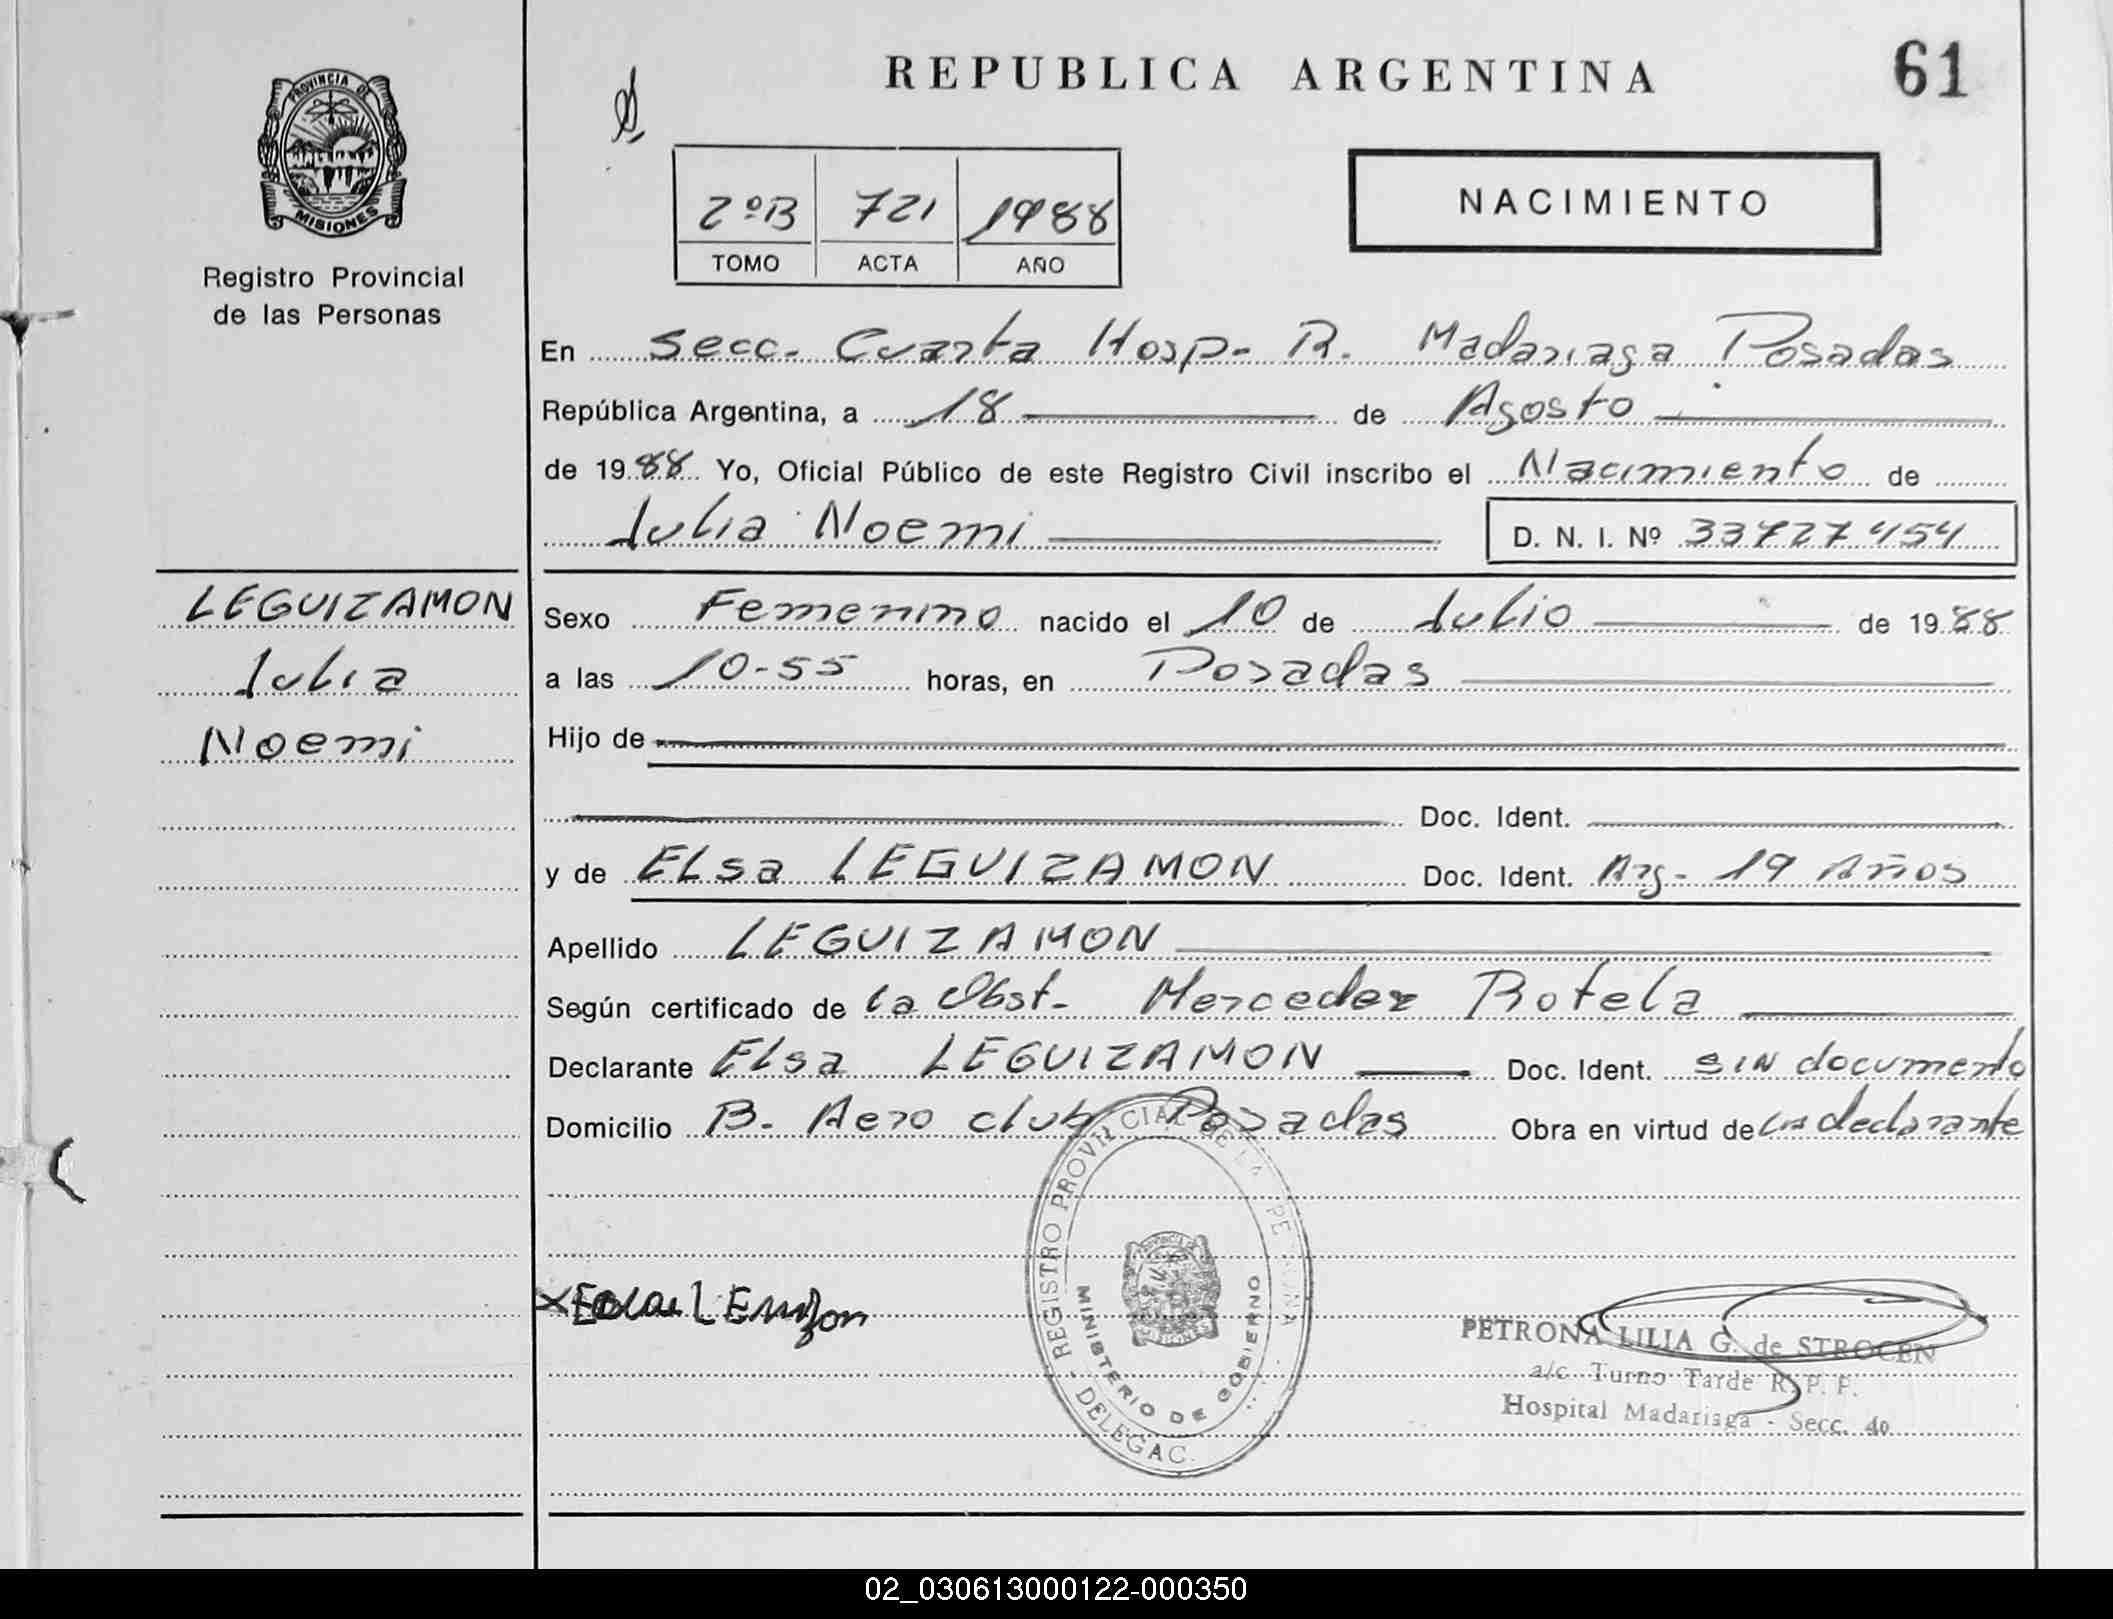 REPUBLICA ARGENTINA
61
PROVINCIA DE
MISIONES
Registro Provincial
de las Personas
2ºB 721 1988
TOMO ACTA AÑO
NACIMIENTO
En Secc. Cuarta Hosp- R. Madariaga Posadas
República Argentina, a 18 de Agosto
de 1988 Yo, Oficial Público de este Registro Civil inscribo el Nacimiento de
Julia Noemi D. N. I. Nº 33727454
LEGUIZAMON
Julia
Noemi
Sexo Femenino nacido el 10 de Julio de 1988
a las 10-55 horas, en Posadas
Hijo de
Doc. Ident.
y de Elsa LEGUIZAMON Doc. Ident. Arg- 19 Años
Apellido LEGUIZAMON
Según certificado de la Obst. Mercedes Rotela
Declarante Elsa LEGUIZAMON Doc. Ident. SIN documento
Domicilio B. Aero club Posadas Obra en virtud de la declarante
REGISTRO PROVINCIAL DE LA
MINISTERIO DE GOBIERNO
DELEGAC.
PETRONA LILIA G. de STROCEN
a/c Turno Tarde R. P. P.
Hospital Madariaga - Secc. 4o
02_030613000122-000350